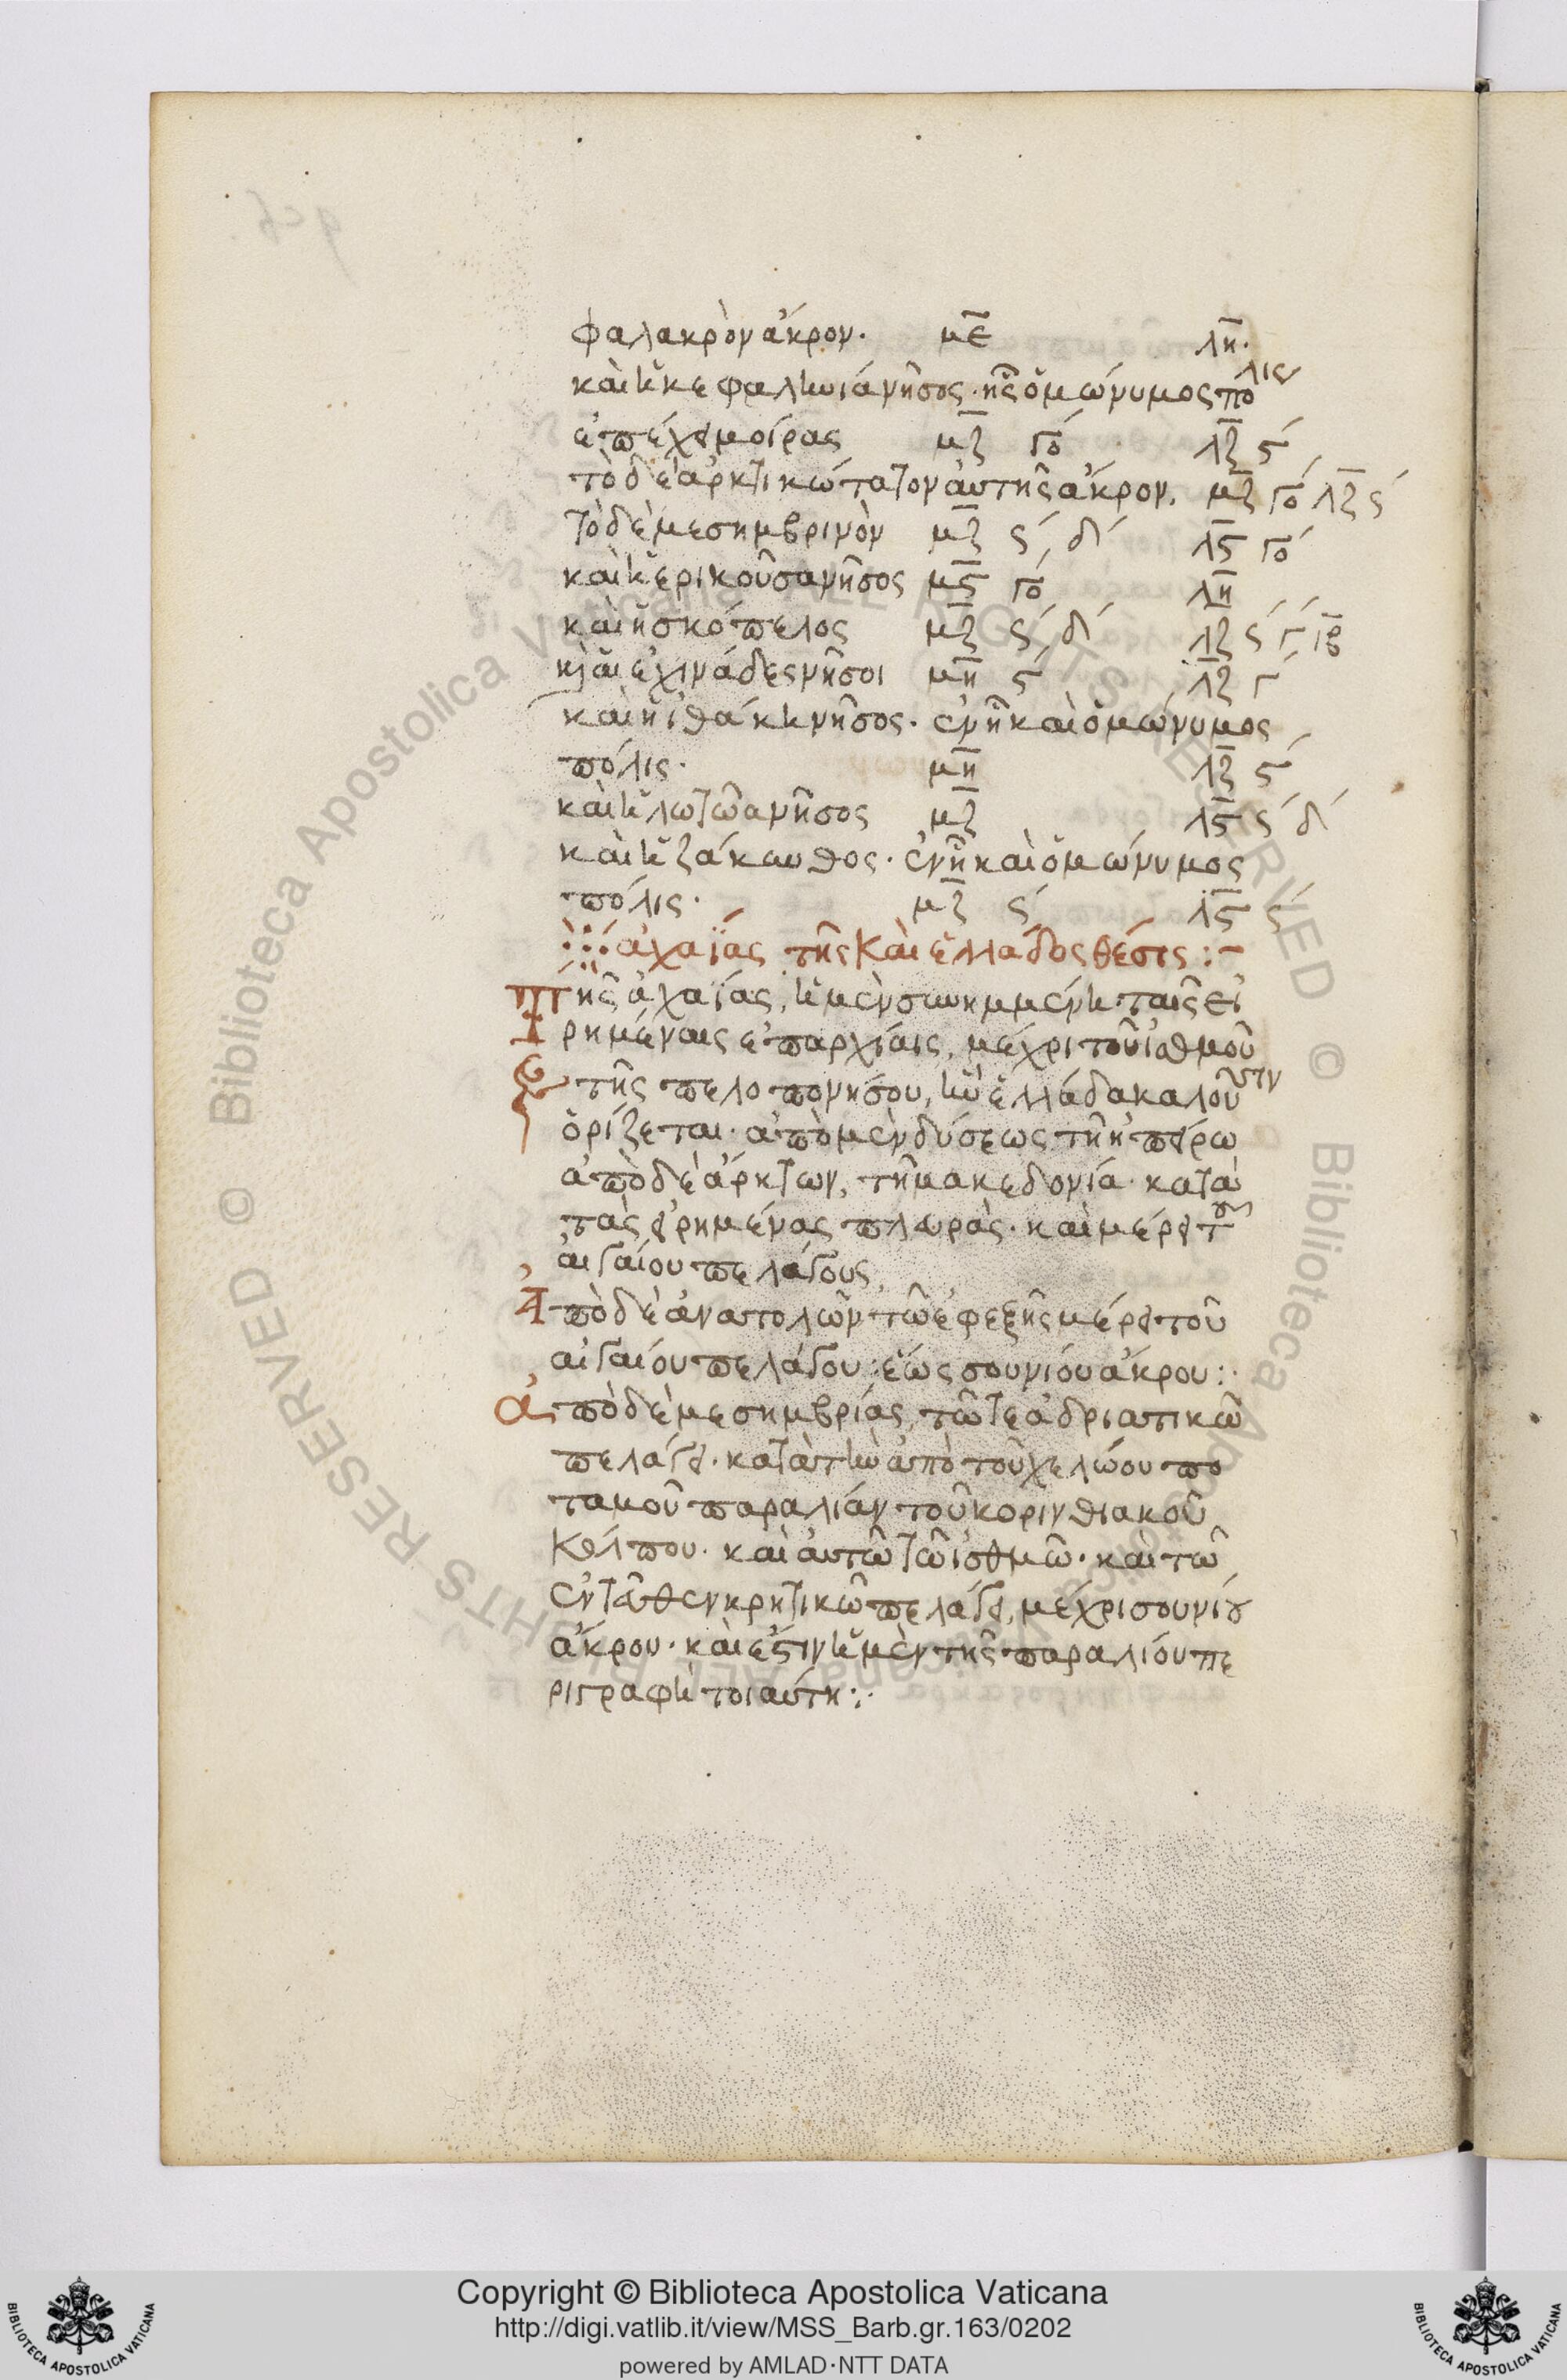 φαλακρὸν ἄκρον· με̅ λη̅·
καὶ ἡ κεφαλληνιάνῆσος· ἧς ὁμώνυμος πόλις
ἐπέχει μοίρας μζ̅ γο΄ λζ̅ ϛ΄
τὸ δὲ ἀρκτικώτατον αὐτῆς ἄκρον, μζ̅ γο΄ λζ̅ ϛ΄
τὸ δὲ μεσημβρινὸν μζ̅ ϛ΄ δ΄ λϛ̅ γο΄
καὶ ἡ ἐρικοῦσα νῆσος μϛ̅ γο΄ λη̅
καὶ ἡ σκόπελος μζ̅ ϛ΄ δ΄ λζ̅ ϛ΄ γ΄ ιβ̅
κ αἱ ἐχινάδες νῆσοι μη̅ ϛ΄ λζ̅ γ΄
καὶ ἡ ἰθάκη νῆσος· ἐν ἧ καὶ ὁμώνυμος
πόλις· μη̅ λζ̅ ϛ΄
καὶ ἡ λωτῶα νῆσος μζ̅ λϛ̅ ϛ΄ δ΄
καὶ ἡ ζάκυνθος· ἐν ἧ καὶ ὁμώνυμος
πόλις· μζ̅ ϛ΄ λϛ̅ ϛ΄
ἀχαΐας τῆς καὶ ἑλλάδος θέσις :-
Τῆς ἀχαΐας, ἡ μὲν συνημμένη ταῖς εἰ
ρημέναις ἐπαρχίαις, μέχρι τοῦ ἰσθμοῦ
τῆς πελοπονήσου, ἣν ἑλλάδα καλοῦσιν
ὁρίζεται· ἀπὸ μὲν δύσεως τῆ ἠπείρω
ἀπὸ δὲ ἄρκτων, τῆ μακεδονία· κατὰ
τὰς εἰρημένας πλευράς· καὶ μέρει τοῦ
αἰγαίου πελάγους,
Ἀπὸ δὲ ἀνατολῶν τῶ ἐφεξῆς μέρει τοῦ
αἰγαίου πελάγου: ἕως σουνίου ἄκρου:·
ἀπὸ δὲ μεσημβρίας, τῶ τε ἀδριατικῶ
πελάγει· κατὰ τὴν ἀπὸ τοῦ χελώου πο
ταμοῦ παραλίαν τοῦ κορινθιακοῦ
κόλπου· καὶ αὐτῶ τῶ ἰσθμῶ· καὶ τῶ
ἐντεῦθεν κρητικῶ πελάγει, μέχρι σουνίου
ἄκρου· καὶ ἔστιν ἡ μὲν τῆς παραλίου πε
ριγραφὴ τοιαύτη:·
Copyright © Biblioteca Apostolica Vaticana
http://digi.vatlib.it/view/MSS_Barb.gr.163/0202
powered by AMLAD·NTT DATA